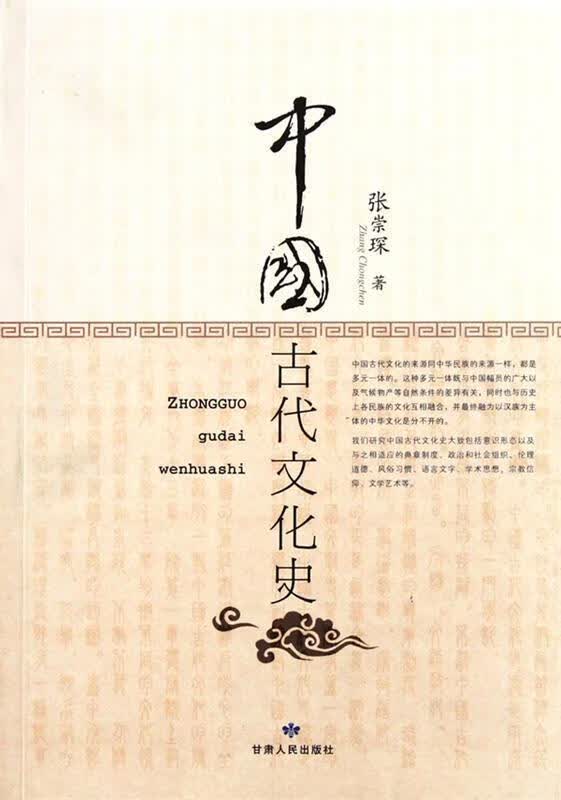 中國
古代文化史
ZHONGGUO
gudai
wenhuashi
张崇琛 著
Zhang Chongchen
中国古代文化的来源同中华民族的来源一样，都是
多元一体的。这种多元一体既与中国幅员的广大以
及气候物产等自然条件的差异有关，同时也与历史
上各民族的文化互相融合，并最终融为以汉族为主
体的中华文化是分不开的。
我们研究中国古代文化史大致包括意识形态以及
与之相适应的典章制度、政治和社会组织、伦理
道德、风俗习惯、语言文字、学术思想、宗教信
仰、文学艺术等。
甘肃人民出版社